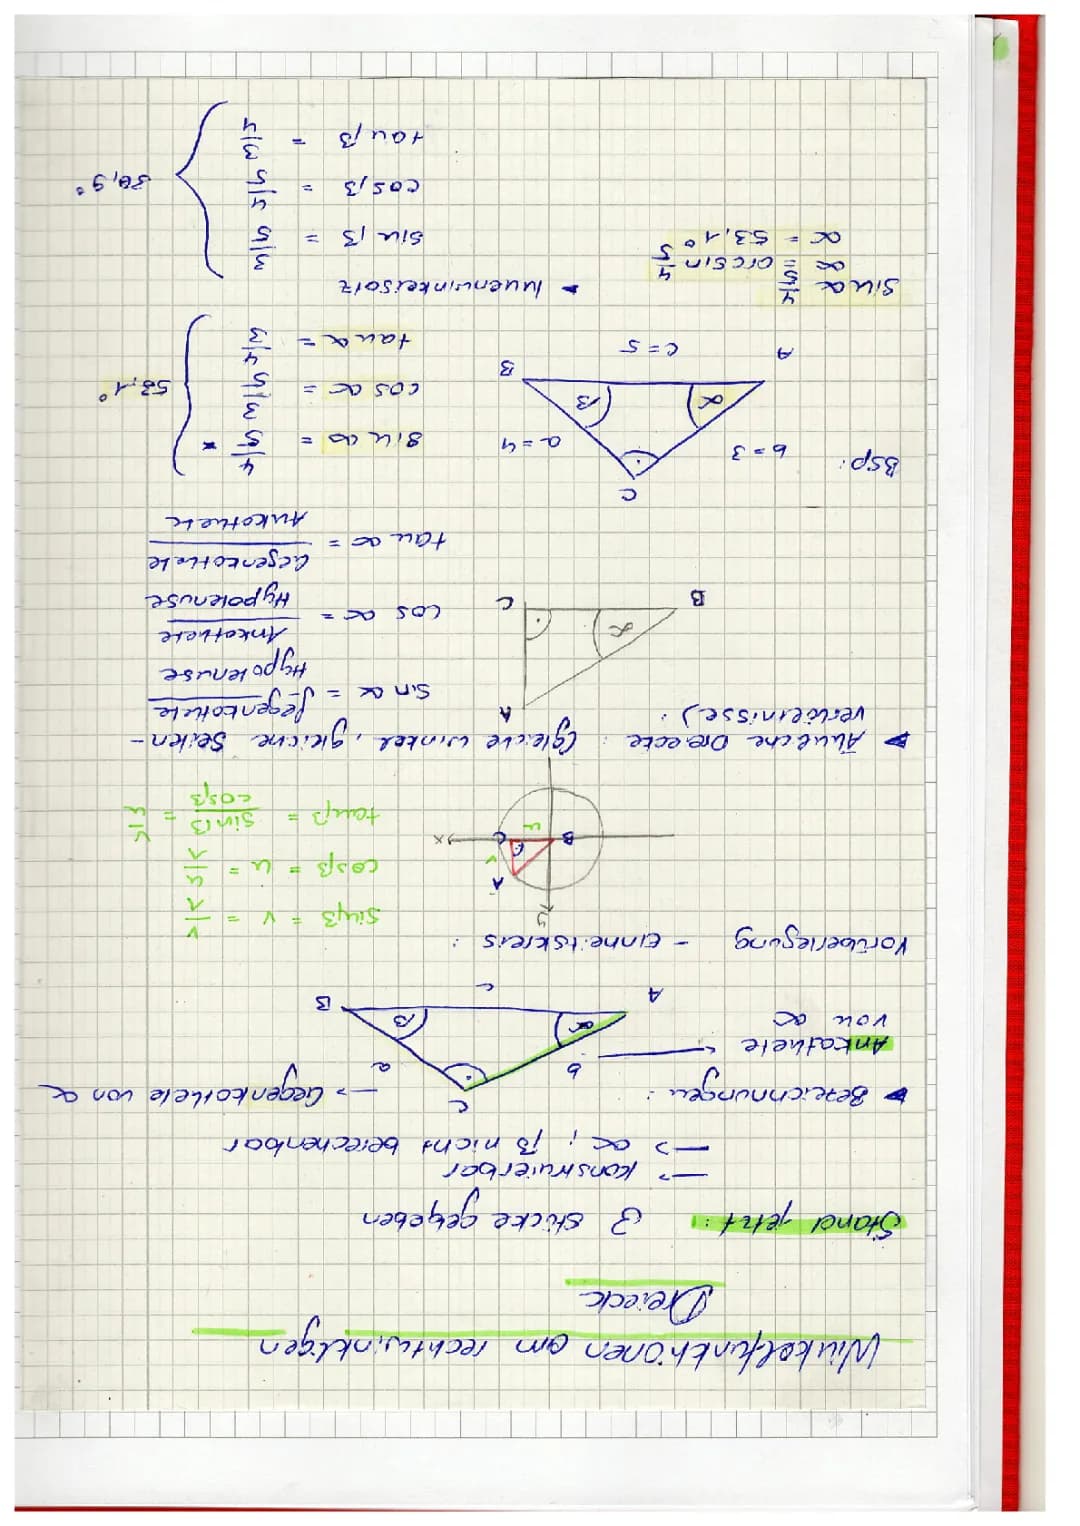 Winkelfunktionen am rechtwinkligen
Dreieck
Stand jetzt: 3 Stücke gegeben
-> konstruierbar
-> α; β nicht berechenbar
▸ Bezeichnungen:
C
b
a
-> Gegenkathete von α
Ankathete
von α
α
β
A
c
B
Vorüberlegung - Einheitskreis:
y
A
v
B
u
C
x
sinβ = v = v/1
cosβ = u = u/1
tanβ = sinβ/cosβ = v/u
▸ Ähnliche Dreiecke: (gleiche Winkel, gleiche Seiten-
verhältnisse).
A
α
B
C
sin α = Gegenkathete/Hypotenuse
cos α = Ankathete/Hypotenuse
tan α = Gegenkathete/Ankathete
Bsp:
C
b = 3
a = 4
α
β
A
c = 5
B
sin α = 4/5 *
cos α = 3/5
tan α = 4/3
53,1°
sin α 4/5
α = arcsin 4/5
α = 53,1°
▸ Innenwinkelsatz
sin β = 3/5
cos β = 4/5
tan β = 3/4
36,9°